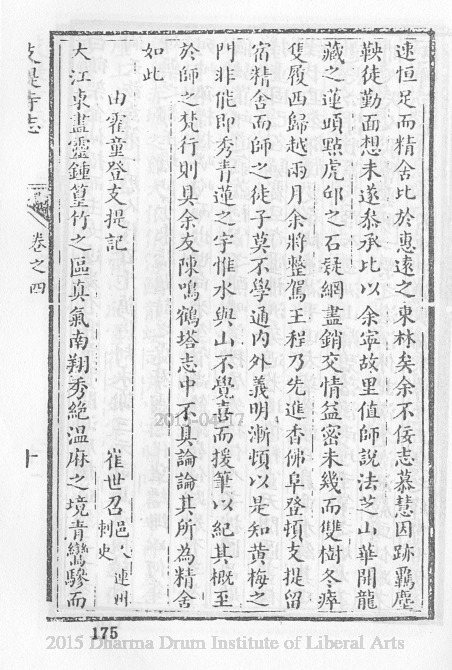 速恒足而精舍比於惠遠之東林矣余不佞志慕慧因跡羈塵
鞅徒勤面想未遂叅承比以余寧故里值師說法芝山華開龍
藏之蓮頭點虎邱之石疑網盡銷交情益密未幾而雙樹冬瘁
隻履西歸越兩月余將整駕王程乃先進香佛阜登頓支提留
宿精舍而師之徒子莫不學通內外義明漸頓以是知黃梅之
門非能即秀青蓮之宇惟水與山不覺喜而援筆以紀其概至
於師之梵行則具余友陳鳴鶴塔志中不具論論其所為精舍
如此
由雀童登支提記
崔世召邑人連州刺史
大江東盡靈鍾篁竹之區真氣南翔秀絕溫麻之境青鸞驂而
支提寺志
卷之四
十
2014-04-17
175
2015 Dharma Drum Institute of Liberal Arts